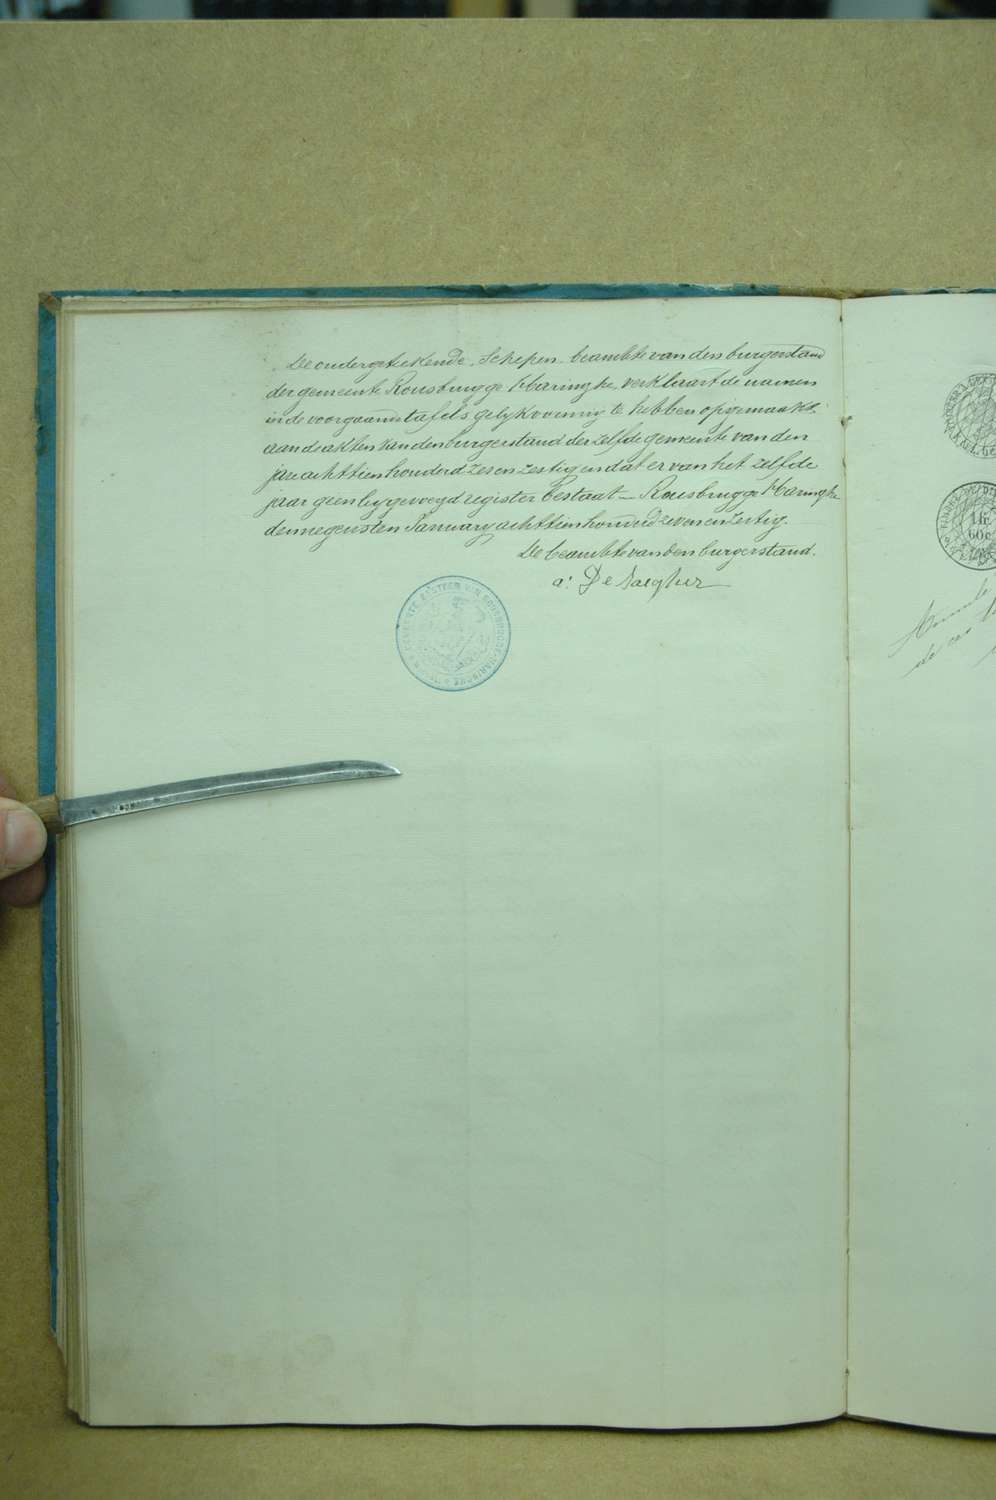 De ondergeteekende, Schepen, beambte van den burgerstand
der gemeente Rousbrugge Haringhe, verklaart de namen
in de voorgaanstafels gelykvormig te hebben opgemaakt
aan de akten van den burgerstand derzelfde gemeente van den
jare achttien honderd zes en zestig en dat er van het zelfde
jaar geen bygevoegd register bestaat — Rousbrugge Haringhe
den negensten January achttien honderd zeven en zestig.
De beambte van den burgerstand.
a: De
1 fr.
60c